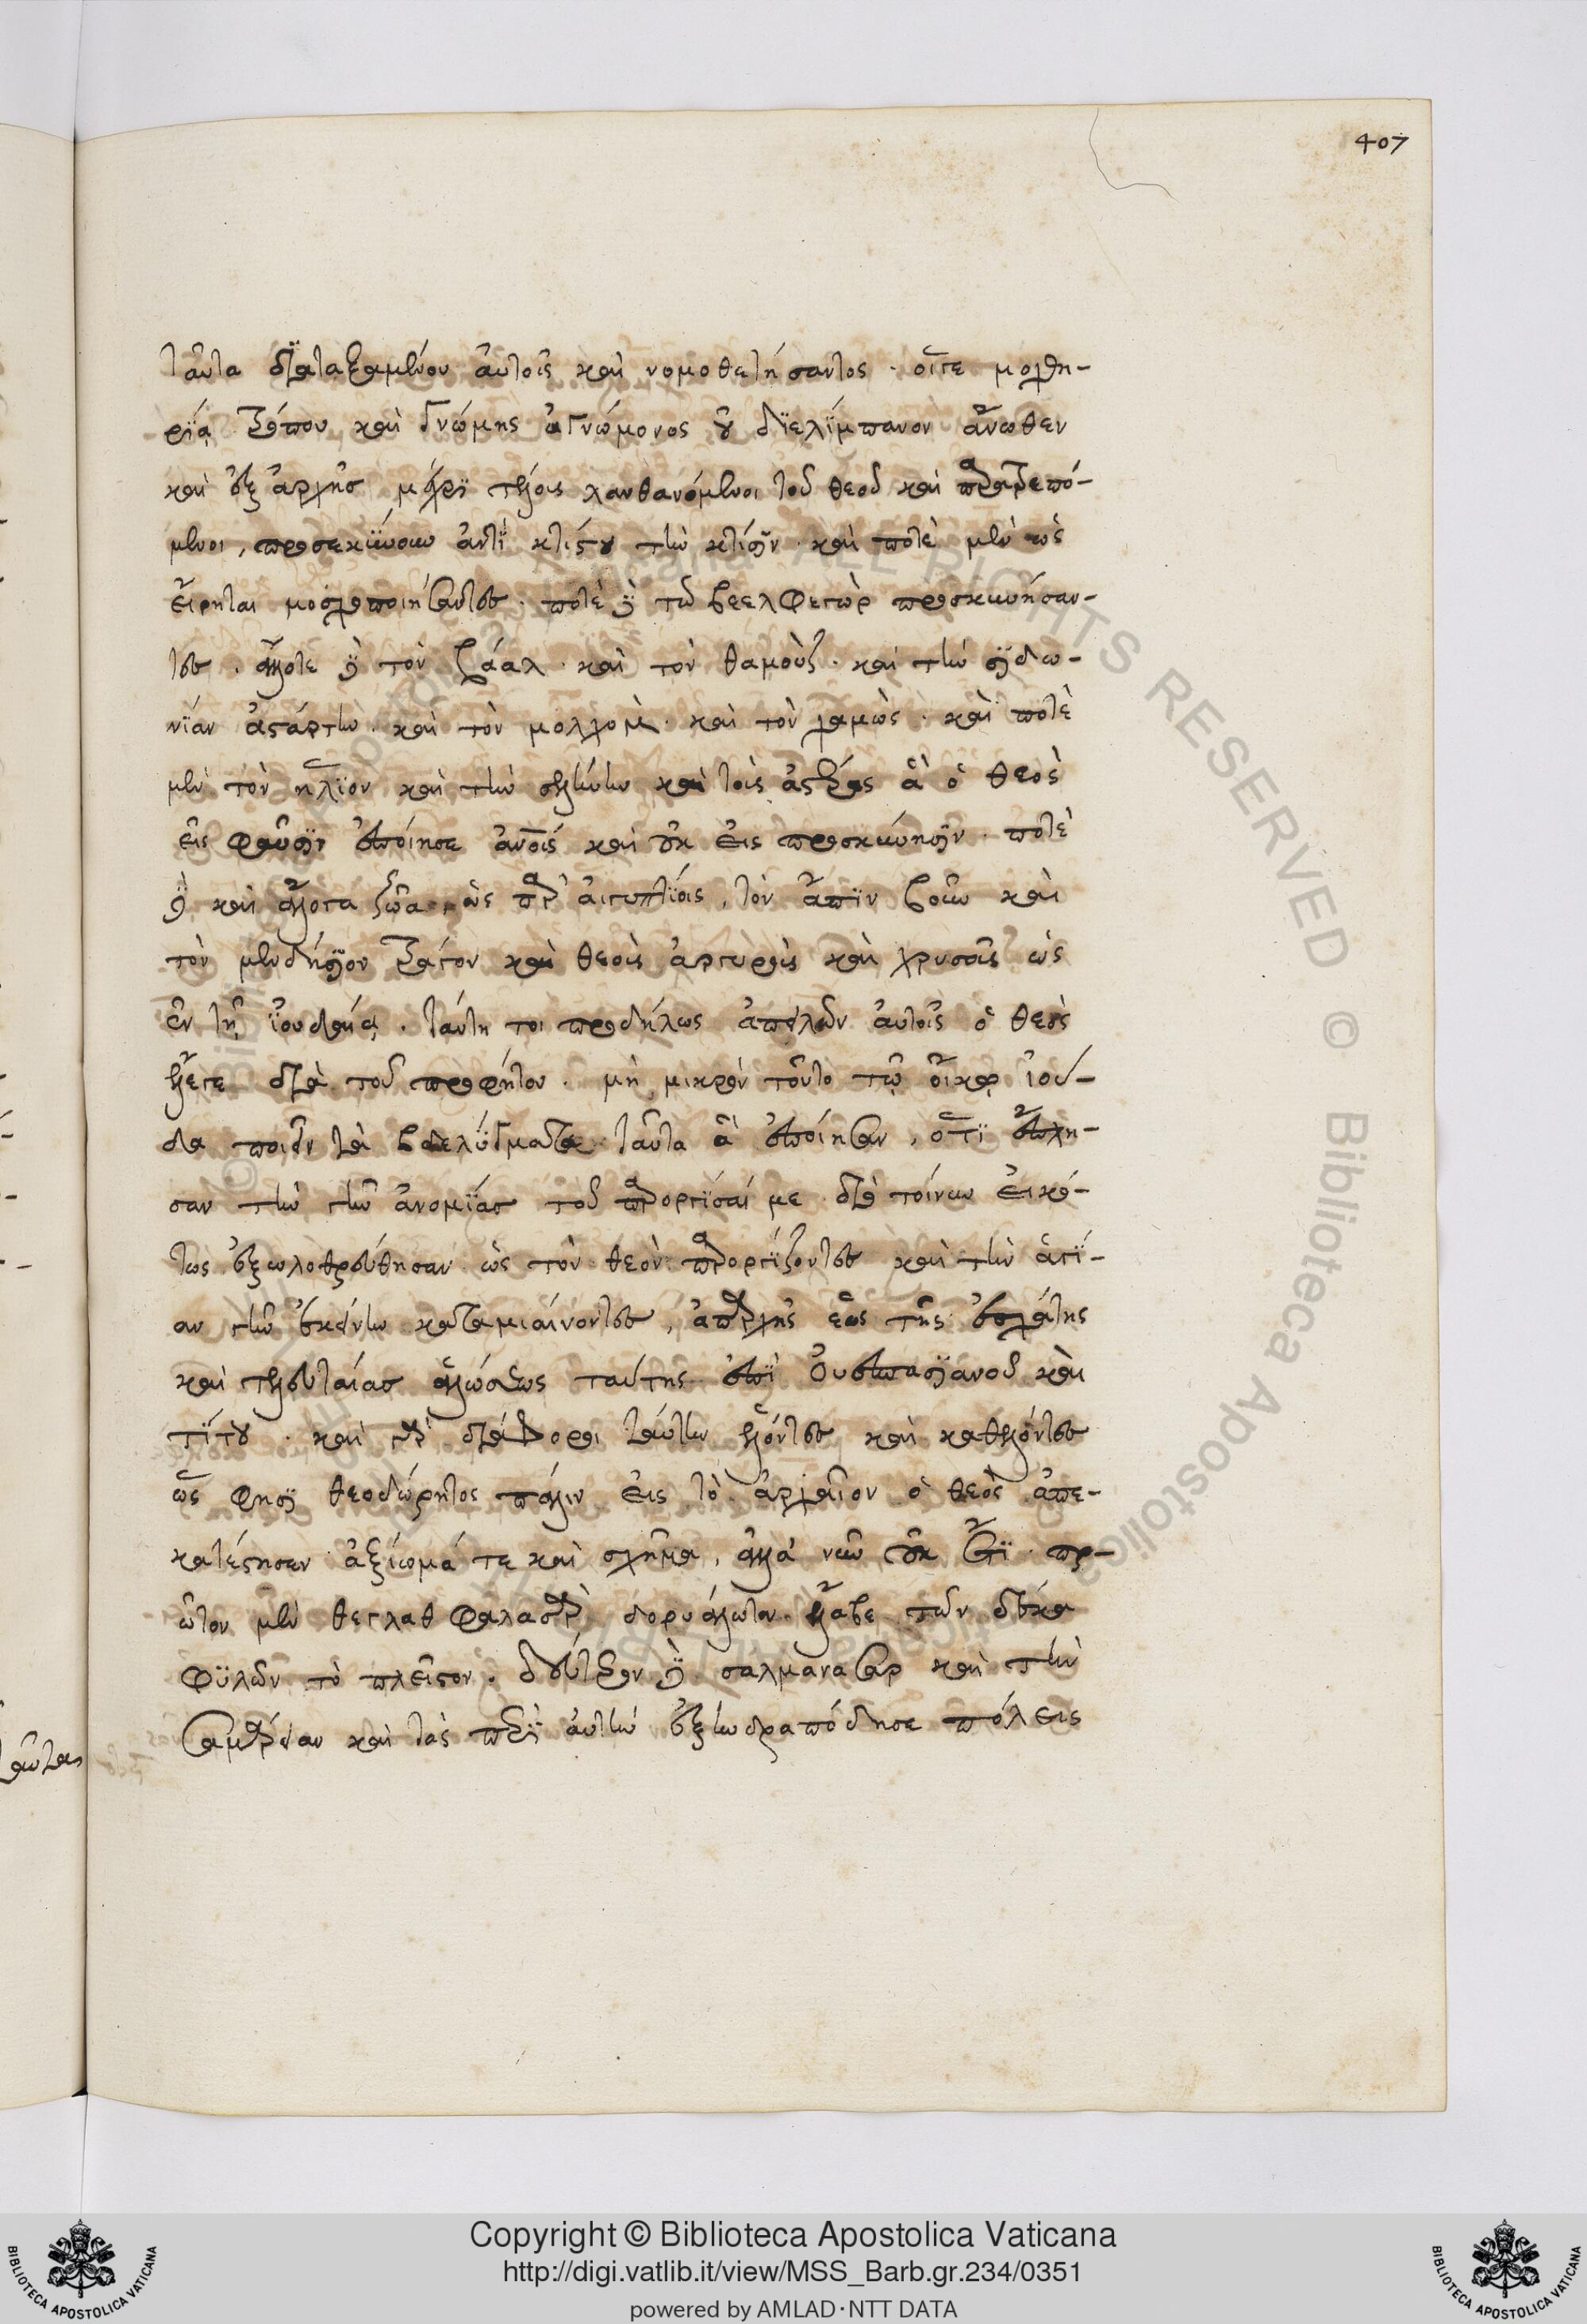 407
ταῦτα διαταξαμένου αὐτοῖς καὶ νομοθετήσαντος · οἵγε μοχθη-
ρίᾳ τρόπου καὶ γνώμης ἀγνώμονος οὐ διελίμπανον ἄνωθεν
καὶ ἐξ ἀρχῆς μέχρι τέλους λανθανόμενοι τοῦ θεοῦ καὶ παρατρεπό-
μενοι, προσεκύνουν ἀντὶ κτίστου τὴν κτίσιν · καὶ ποτὲ μὲν ὡς
εἴρηται μοσχοποιήσαντες · ποτὲ δὲ τῶ βεελφεγὼρ προσκυνήσαν-
τες · ἄλλοτε δὲ τὸν βάαλ · καὶ τὸν θαμοὺζ · καὶ τὴν σιδω-
νίαν ἀστάρτην · καὶ τὸν μολχομ · καὶ τὸν χαμὼς · καὶ ποτὲ
μὲν τὸν ἥλιον καὶ τὴν σελήνην καὶ τοῖς ἄστρας ἃ ὁ θεὸς
εἰς φαῦσιν ἐποίησε ἀνοῖς καὶ οὐκ εἰς προσκύνησιν · ποτὲ
δὲ καὶ ἄλλογα ζῶα ὡς παρ' αἰγυπτίοις, τὸν ἄπιν βοῦν καὶ
τὸν μενδήσιον τράγον καὶ θεοὺς ἀργυροῖς καὶ χρυσοῖς ὡς
ἐν τῇ ἰουδαίᾳ · ταύτη τοι προδήλως ἀπειλῶν αὐτοῖς ὁ θεὸς
ἔλεγε διὰ τοῦ προφήτου · μὴ μικρὸν τοῦτο τῷ οἴκῳ ἰού-
δα ποιεῖν τὰ βδελύγματα ταῦτα ἃ ἐποίησαν, ὅτι ἔπλη-
σαν τὴν γῆν ἀνομίας τοῦ παροργίσαί με · διὰ τοίνυν εἰκό-
τως ἐξωλοθρεύθησαν ὡς τὸν θεὸν παροργίζοντες καὶ τὴν ἁγί-
αν γῆν ἐκείνην καταμιαίνοντες, ἀπαρχῆς ἕως τῆς ἐσχάτης
καὶ τελευταίας ἁλώσεως ταύτης ἐπὶ Οὐεσπασιανοῦ καὶ
τίτου · καὶ γὰρ διάφοροι ταύτην ἑλόντες καὶ καθελόντες
ὥς φησι θεοδώρητος πάλιν εἰς τὸ ἀρχαῖον ὁ θεὸς ἀπε-
κατέστησεν ἀξίωμά τε καὶ σχῆμα, ἀλλὰ νῦν οὐκ ἔτι · πρ-
ῶτον μὲν θεγλαθ φαλασὰρ δορυάλωτον ἔλαβε τῶν δέκα
φυλῶν τὸ πλεῖστον · δεύτερον δὲ σαλμανασαρ καὶ τὴν
σαμάρειαν καὶ τὰς περὶ αὐτὴν ἐξηνδραπόδησε πόλεις
Copyright © Biblioteca Apostolica Vaticana
http://digi.vatlib.it/view/MSS_Barb.gr.234/0351
powered by AMLAD·NTT DATA